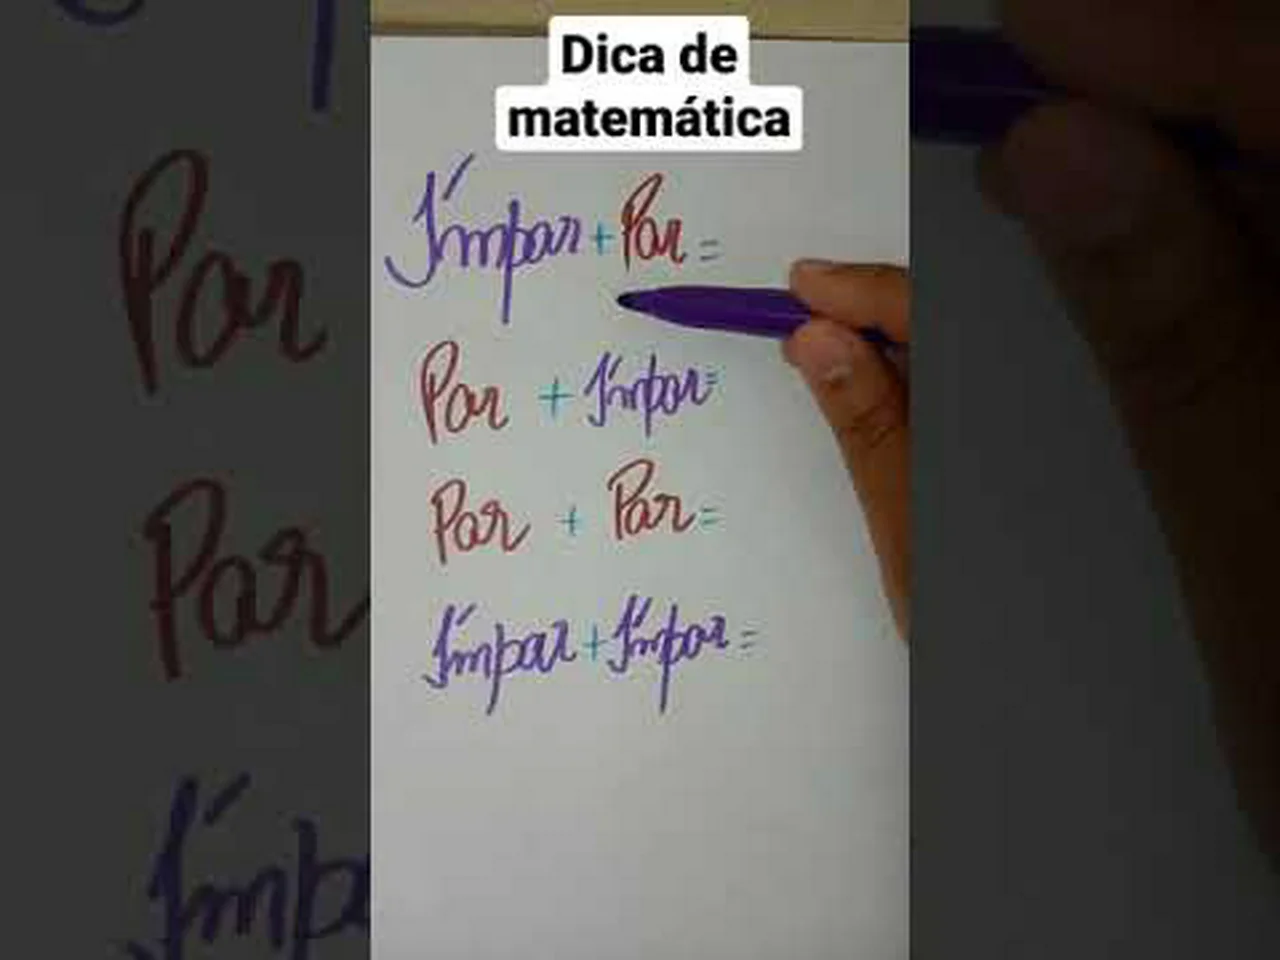 Dica de
matemática
Ímpar + Par =
Par + Ímpar =
Par + Par =
Ímpar + Ímpar =